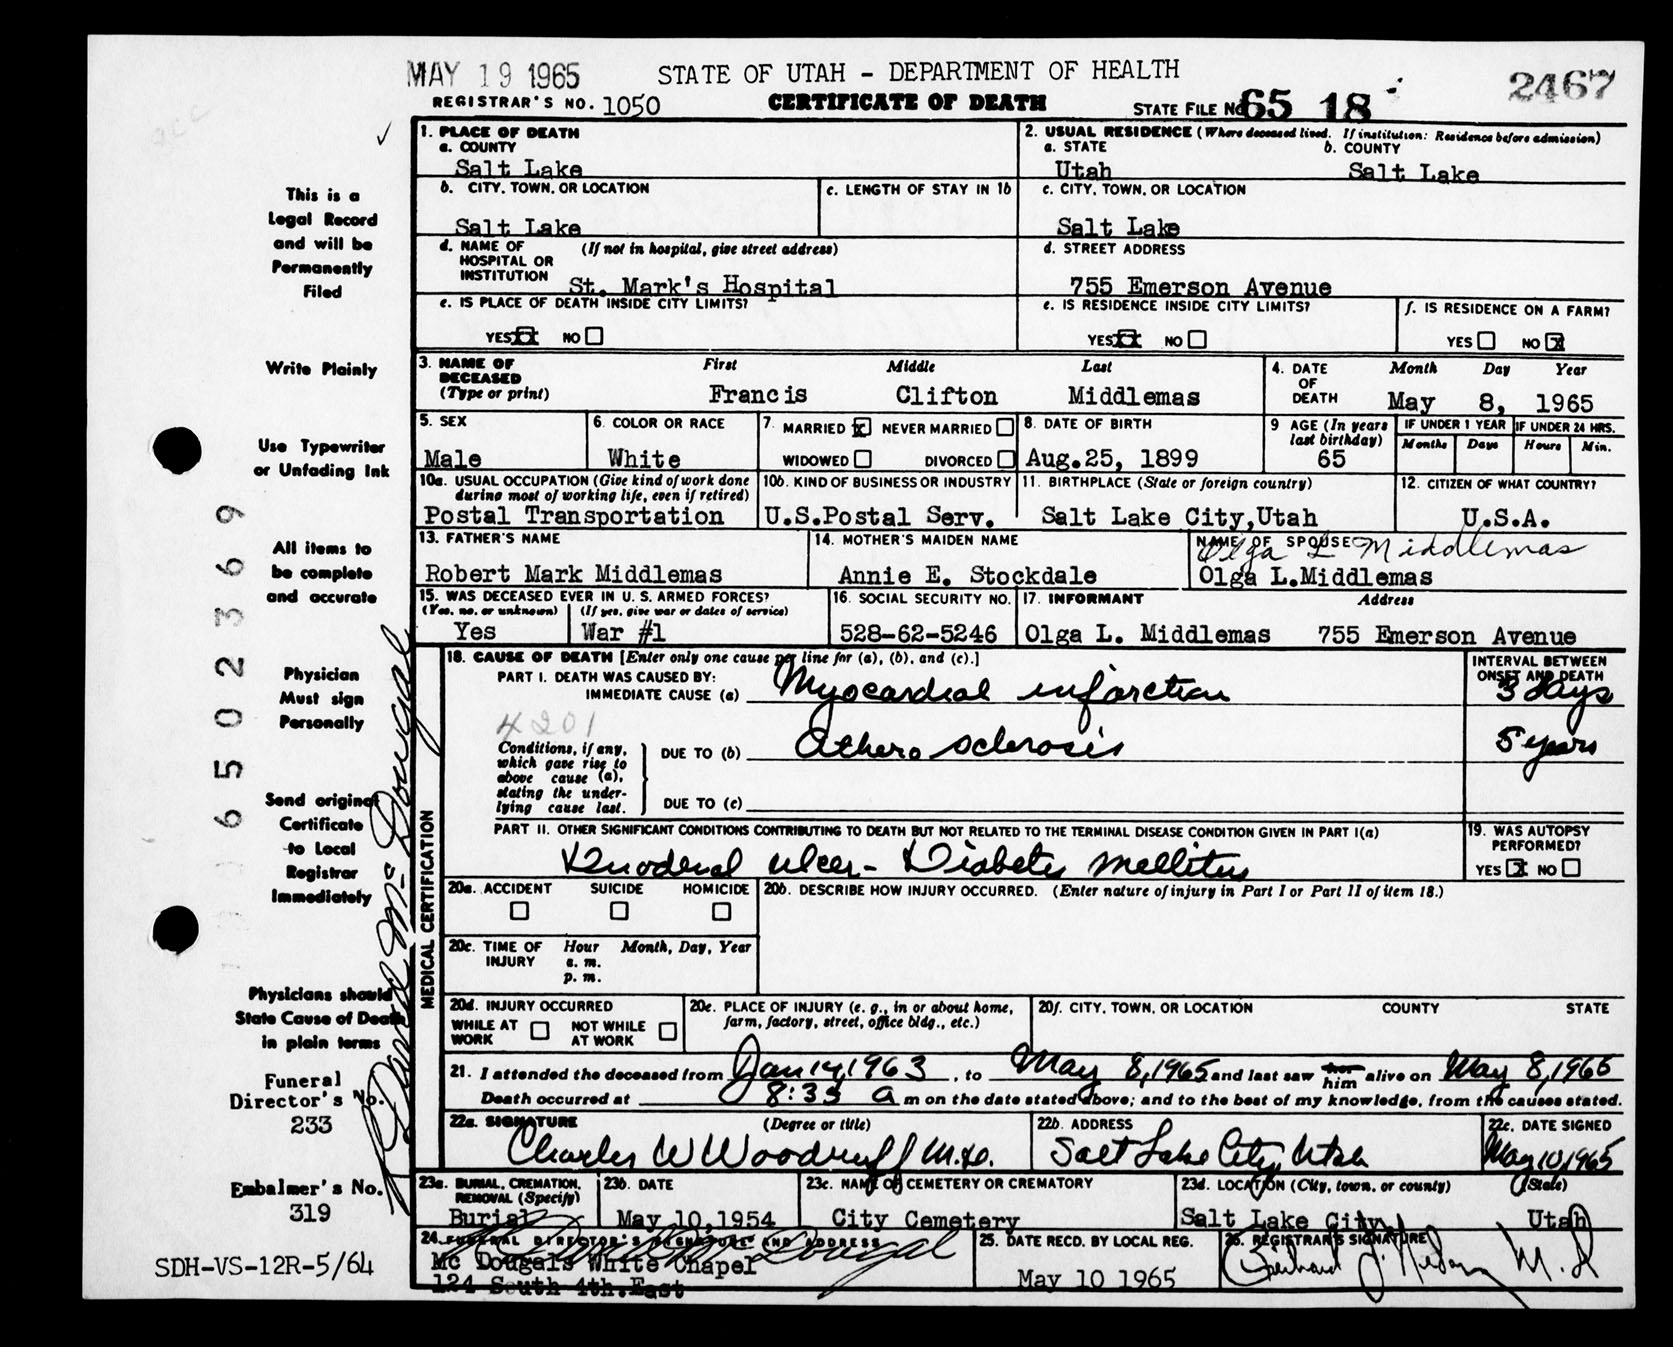 MAY 19 1965 STATE OF UTAH - DEPARTMENT OF HEALTH 2467
REGISTRAR'S NO. 1050 CERTIFICATE OF DEATH STATE FILE NO. 65 18
1. PLACE OF DEATH
a. COUNTY
Salt Lake
2. USUAL RESIDENCE (Where deceased lived. If institution: Residence before admission)
a. STATE b. COUNTY
Utah Salt Lake
b. CITY, TOWN, OR LOCATION c. LENGTH OF STAY IN 1b
Salt Lake
c. CITY, TOWN, OR LOCATION
Salt Lake
d. NAME OF HOSPITAL OR INSTITUTION (If not in hospital, give street address)
St. Mark's Hospital
d. STREET ADDRESS
755 Emerson Avenue
e. IS PLACE OF DEATH INSIDE CITY LIMITS?
YES NO
e. IS RESIDENCE INSIDE CITY LIMITS?
YES NO
f. IS RESIDENCE ON A FARM?
YES NO X
3. NAME OF DECEASED (Type or print) First Middle Last
Francis Clifton Middlemas
4. DATE OF DEATH Month Day Year
May 8, 1965
5. SEX
Male
6. COLOR OR RACE
White
7. MARRIED X NEVER MARRIED
WIDOWED DIVORCED
8. DATE OF BIRTH
Aug.25, 1899
9 AGE (In years last birthday)
65
IF UNDER 1 YEAR IF UNDER 24 HRS.
Months Days Hours Min.
10a. USUAL OCCUPATION (Give kind of work done during most of working life, even if retired)
Postal Transportation
10b. KIND OF BUSINESS OR INDUSTRY
U.S.Postal Serv.
11. BIRTHPLACE (State or foreign country)
Salt Lake City,Utah
12. CITIZEN OF WHAT COUNTRY?
U.S.A.
13. FATHER'S NAME
Robert Mark Middlemas
14. MOTHER'S MAIDEN NAME
Annie E. Stockdale
NAME OF SPOUSE
Olga L Middlemas
Olga L.Middlemas
15. WAS DECEASED EVER IN U. S. ARMED FORCES?
(Yes, no, or unknown) (If yes, give war or dates of service)
Yes War #1
16. SOCIAL SECURITY NO.
528-62-5246
17. INFORMANT Address
Olga L. Middlemas 755 Emerson Avenue
MEDICAL CERTIFICATION
18. CAUSE OF DEATH [Enter only one cause per line for (a), (b), and (c).]
INTERVAL BETWEEN ONSET AND DEATH
PART I. DEATH WAS CAUSED BY:
IMMEDIATE CAUSE (a) Myocardial infarction 3 days
4201
Conditions, if any, which gave rise to above cause (a), stating the underlying cause last.
DUE TO (b) Athero sclerosis 5 years
DUE TO (c)
PART II. OTHER SIGNIFICANT CONDITIONS CONTRIBUTING TO DEATH BUT NOT RELATED TO THE TERMINAL DISEASE CONDITION GIVEN IN PART I(a)
Duodenal ulcer - Diabetes Mellitus
19. WAS AUTOPSY PERFORMED?
YES X NO
20a. ACCIDENT SUICIDE HOMICIDE
20b. DESCRIBE HOW INJURY OCCURRED. (Enter nature of injury in Part I or Part II of item 18.)
20c. TIME OF INJURY Hour Month, Day, Year
a. m.
p. m.
20d. INJURY OCCURRED
WHILE AT WORK NOT WHILE AT WORK
20e. PLACE OF INJURY (e. g., in or about home, farm, factory, street, office bldg., etc.)
20f. CITY, TOWN, OR LOCATION COUNTY STATE
21. I attended the deceased from Jan 14, 1963, to May 8, 1965 and last saw her him alive on May 8, 1965
Death occurred at 8:35 a m on the date stated above; and to the best of my knowledge, from the causes stated.
22a. SIGNATURE (Degree or title)
Charles W Woodruff M.D.
22b. ADDRESS
Salt Lake City, Utah
22c. DATE SIGNED
May 10, 1965
23a. BURIAL, CREMATION, REMOVAL (Specify)
Burial
23b. DATE
May 10,1954
23c. NAME OF CEMETERY OR CREMATORY
City Cemetery
23d. LOCATION (City, town, or county) (State)
Salt Lake City Utah
24. FUNERAL DIRECTOR'S SIGNATURE AND ADDRESS
Mc Dougals White Chapel
124 South 4th.East
25. DATE RECD. BY LOCAL REG.
May 10 1965
26. REGISTRAR'S SIGNATURE
M.D
This is a
Legal Record
and will be
Permanently
Filed
Write Plainly
Use Typewriter
or Unfading Ink
All items to
be complete
and accurate
Physician
Must sign
Personally
Send original
Certificate
to Local
Registrar
Immediately
Physicians should
State Cause of Death
in plain terms
Funeral
Director's No.
233
Embalmer's No.
319
SDH-VS-12R-5/64
6502369